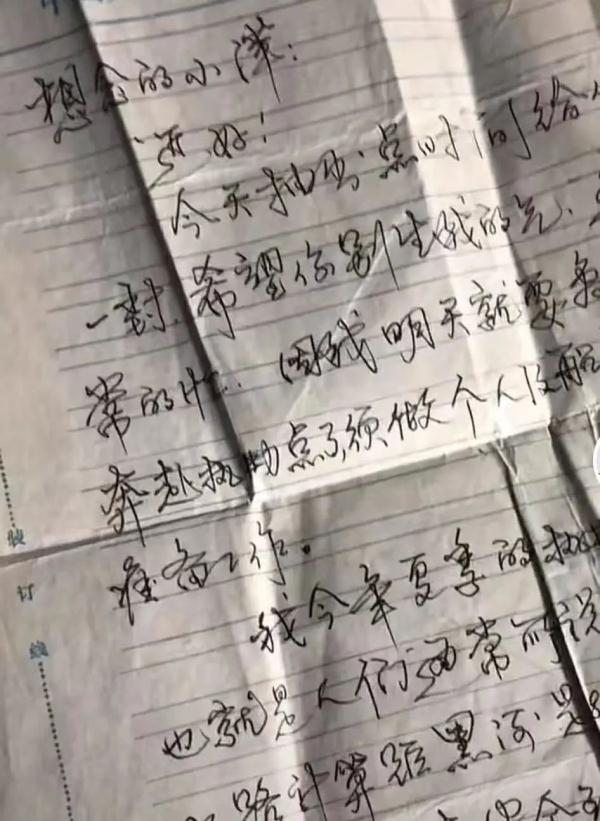 想念的小萍:
还好!
今天抽出点时间给
一封,希望你别生我的气,
常的忙.因我明天就要
奔赴执勤点了,须做个人及船
准备工作。
我今年夏季的执
也就是人们通常所说
路计算距黑河
装
订
线